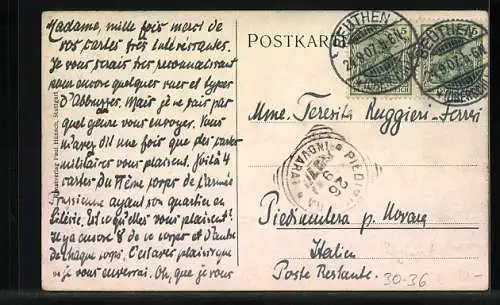 Madame, mille fois merci de
vos cartes très intéressantes.
Je vous serais très reconnaissant
pour encore quelques vues et types
d'Abbazia. Mais je ne sais pas
quel genre vous envoyer. Vous
m'avez dit une fois que des cartes
militaires vous plaisent. Voilà 4
cartes du VIème corps de l'armée
prussienne ayant son quartier en
Silésie. Est-ce qu'elles vous plaisent?
Il y a encore 8 de ce corps et d'autres
de chaque corps. C'est avec plaisir que
je vous enverrai. Oh, que je vous
POSTKARTE
BEUTHEN
24.9.07.
BEUTHEN
24.9.07.
Mme. Teresita Ruggieri-
PIEDIMULERA
(NOVARA)
26
9
07
Piedimulera p. Novara
Italien
Poste Restante.
30-36